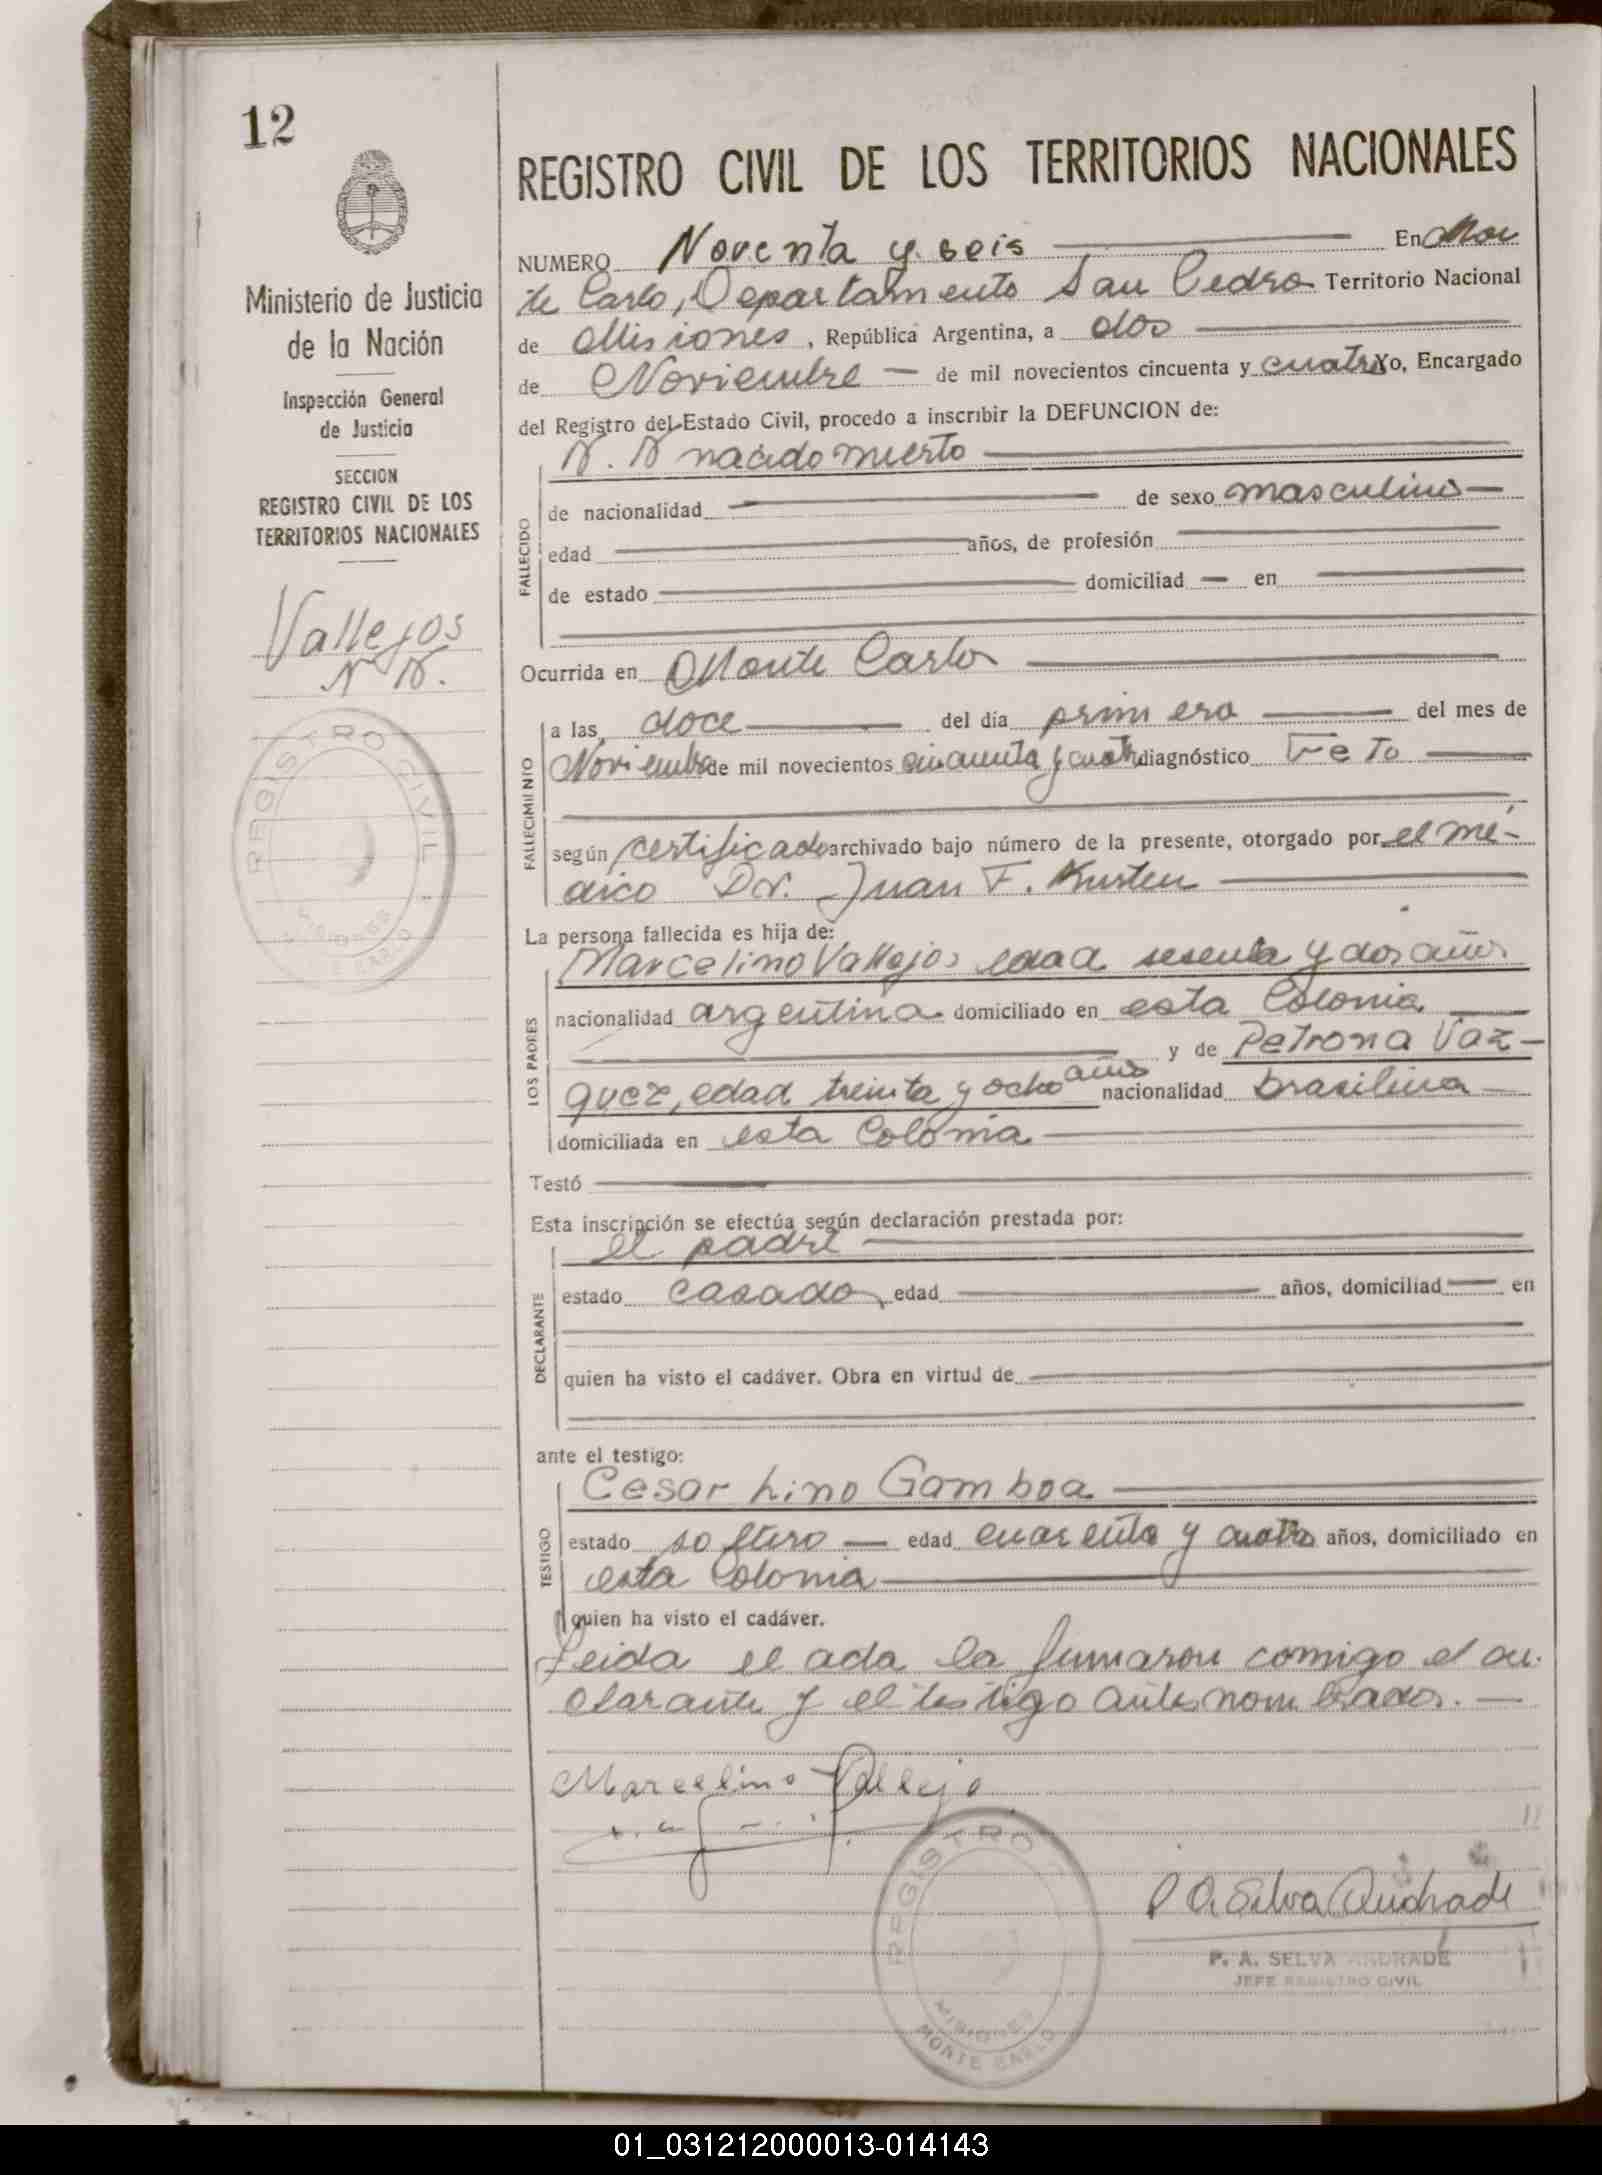 12
Ministerio de Justicia
de la Nación
Inspección General
de Justicia
SECCION
REGISTRO CIVIL DE LOS
TERRITORIOS NACIONALES
Vallejos
N N.
REGISTRO CIVIL
MISIONES
REGISTRO CIVIL DE LOS TERRITORIOS NACIONALES
NUMERO Noventa y seis En Mon
te Carlo, Departamento San Pedro Territorio Nacional
de Misiones, República Argentina, a dos
de Noviembre de mil novecientos cincuenta y cuatro Yo, Encargado
del Registro del Estado Civil, procedo a inscribir la DEFUNCION de:
N. N nacido muerto
FALLECIDO
de nacionalidad de sexo masculino
edad años, de profesión
de estado domiciliad en
Ocurrida en Monte Carlo
FALLECIMIENTO
a las doce del día primero del mes de
Noviembre de mil novecientos cincuenta y cuatro diagnóstico Feto
según certificado archivado bajo número de la presente, otorgado por el mé-
dico Dr. Juan F. Kusten
La persona fallecida es hija de:
LOS PADRES
Marcelino Vallejos edad sesenta y dos años
nacionalidad argentina domiciliado en esta Colonia
y de Petrona Vaz-
quez, edad treinta y ocho años nacionalidad brasilina
domiciliada en esta Colonia
Testó
Esta inscripción se efectúa según declaración prestada por:
DECLARANTE
el padre
estado casado, edad años, domiciliad en
quien ha visto el cadáver. Obra en virtud de
ante el testigo:
TESTIGO
Cesar Lino Gamboa
estado soltero edad cuarenta y cuatro años, domiciliado en
esta Colonia
quien ha visto el cadáver.
Leida el acta la firmaron comigo el de-
clarante y el testigo antes nombrados.
Marcelino Vallejo
REGISTRO
MISIONES
MONTE CARLO
P A. Selva Andrade
P. A. SELVA ANDRADE
JEFE REGISTRO CIVIL
01_031212000013-014143